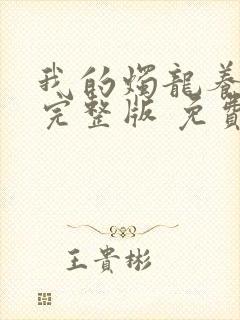 我的燭龍養
完整版 免費
王貴彬